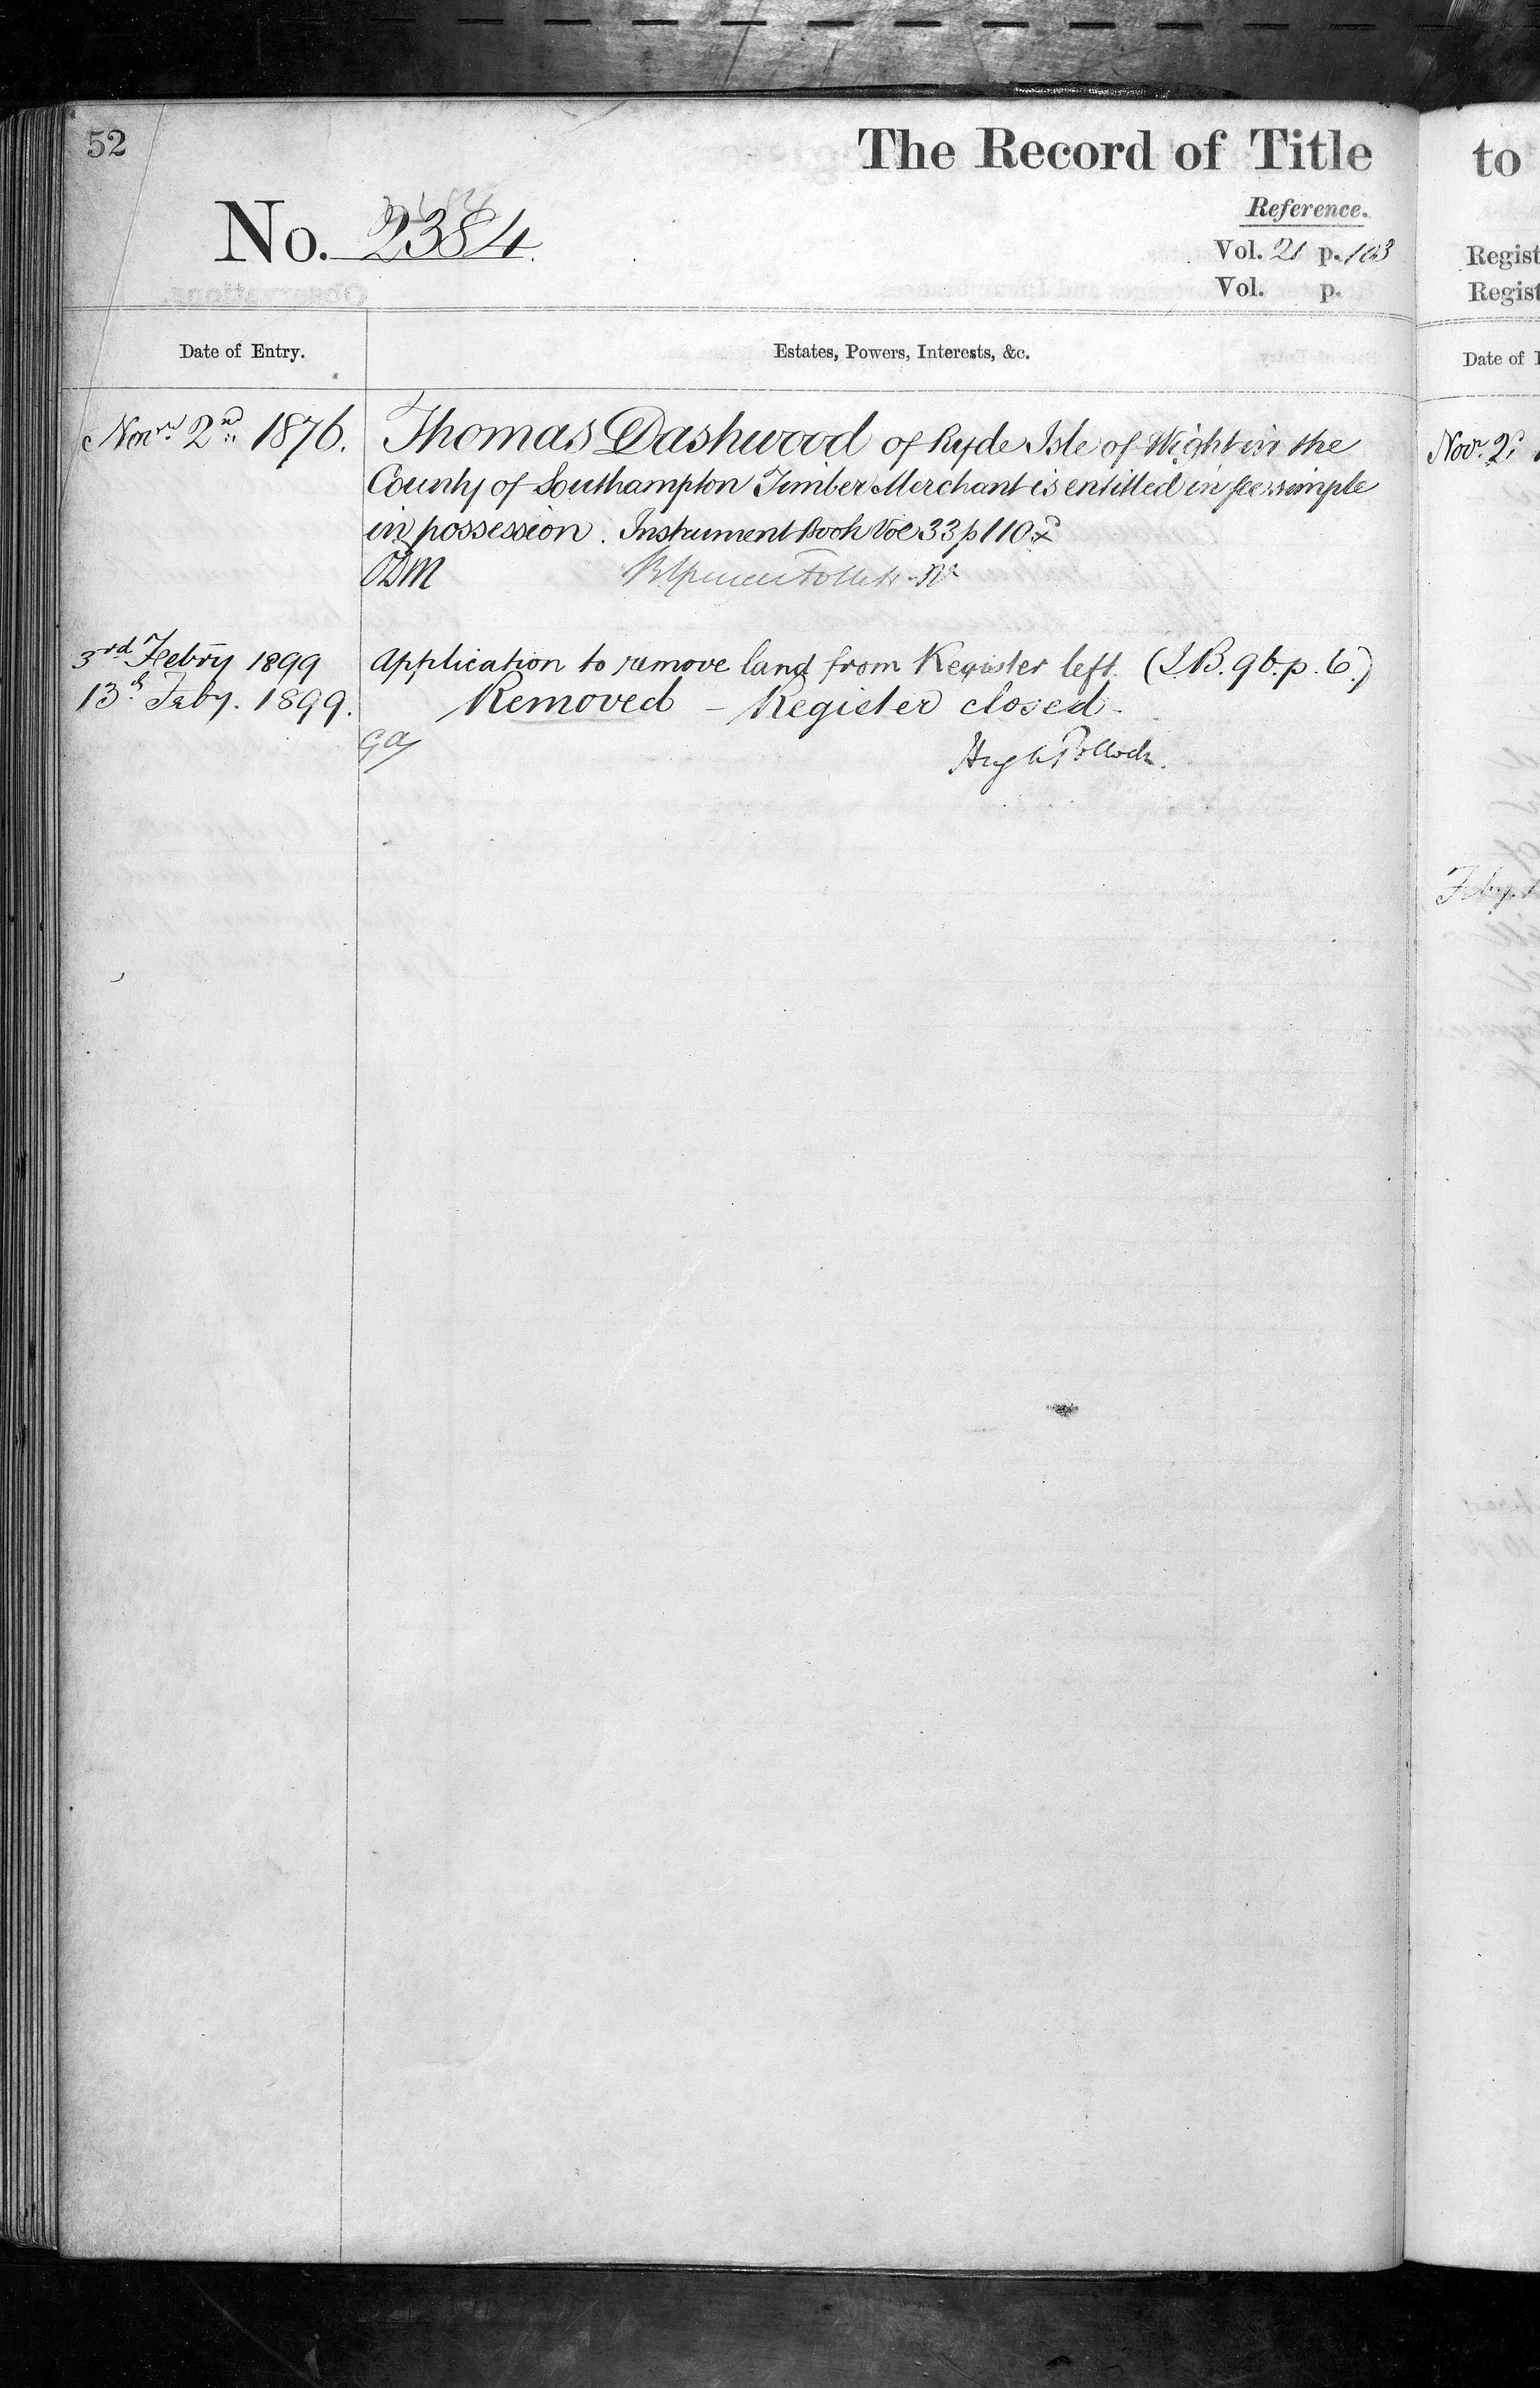 52
The Record of Title
No. 2384
Reference.
Vol. 21 p. 103
Vol. p.
Date of Entry.
Estates, Powers, Interests, &c.
Novr. 2nd 1876.
Thomas Dashwood of Ryde Isle of Wight in the
County of Southampton Timber Merchant is entitled in fee simple
in possession. Instrument Book Vol 33 p 110
3rd Febry 1899
Application to remove land from Register left. (I.B. 96. p. 6.)
13th Feby. 1899.
Removed – Register closed –
Hugh Pollock.
to
Regist
Regist
Date of
Nov. 2
Feby.